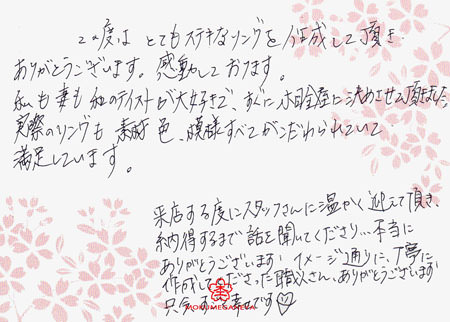 この度は とてもステキなリングを作成して頂き
ありがとうございます。感動しております。
私も妻も和のテイストが大好きで、すぐに杢目金屋に決めさせて頂きました。
実際のリングも 素材、色、模様すべてがこだわられていて
満足しています。
来店する度にスタッフさんに温かく迎えて頂き、
納得するまで話を聞いてくださり…本当に
ありがとうございます! イメージ通りに、丁寧に
作成してくださった職人さん、ありがとうございます!
幸せです♡
MOKUMEGANEYA